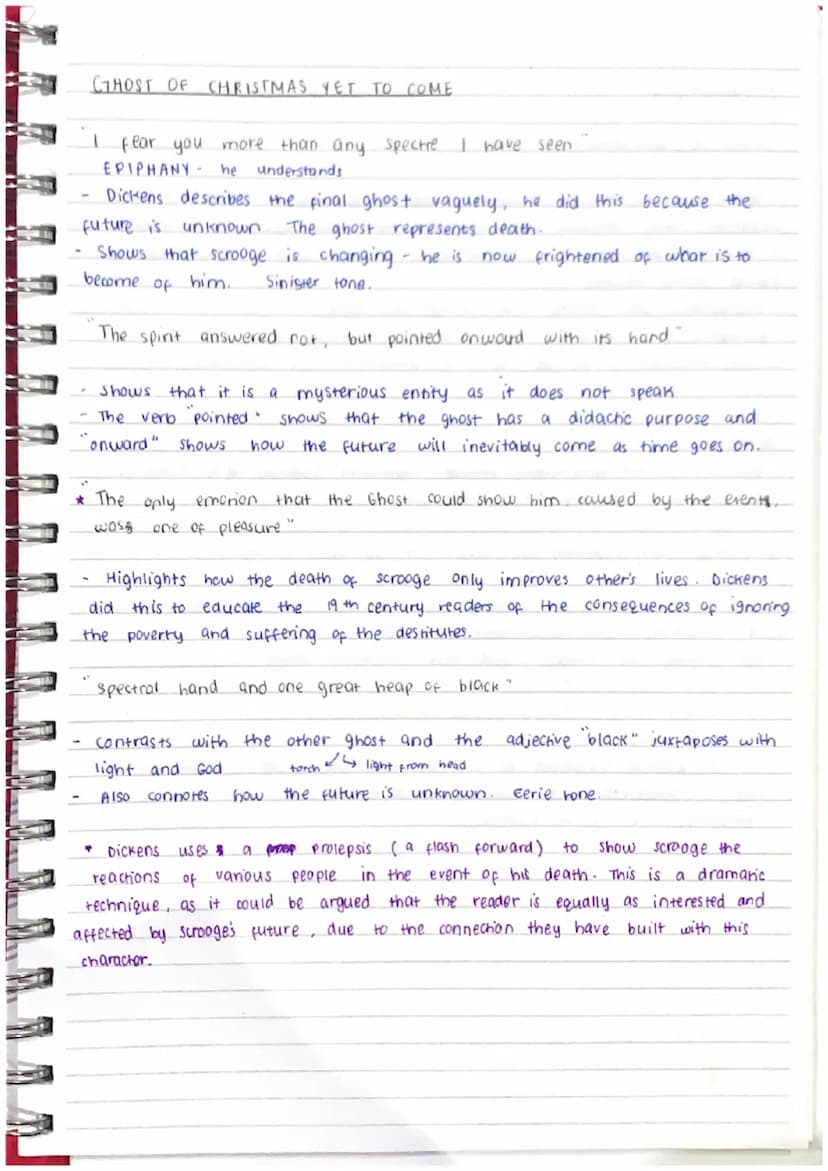 GHOST OF CHRISTMAS YET TO COME
"I fear you more than any spectre I have seen"
EPIPHANY - he understands
- Dickens describes the final ghost vaguely, he did this because the
future is unknown The ghost represents death.
- Shows that scrooge is changing - he is now frightened of what is to
become of him. Sinister tone.
"The spirit answered not, but pointed onward with its hand"
- Shows that it is a mysterious entity as it does not speak
- The verb "pointed" shows that the ghost has a didactic purpose and
"onward" shows how the future will inevitably come as time goes on.
★ "The only emotion that the Ghost could show him, caused by the events,
was one of pleasure"
- Highlights how the death of scrooge only improves other's lives. Dickens
did this to educate the 19th century readers of the consequences of ignoring
the poverty and suffering of the destitutes.
"Spectral hand and one great heap of black"
- Contrasts with the other ghost and the adjective "black" juxtaposes with
light and God torch ↙↳ light from head
- Also connotes how the future is unknown. Eerie tone.
* Dickens uses a prolepsis (a flash forward) to show scrooge the
reactions of various people in the event of his death. This is a dramatic
technique, as it could be argued that the reader is equally as interested and
affected by scrooge's future, due to the connection they have built with this
character.